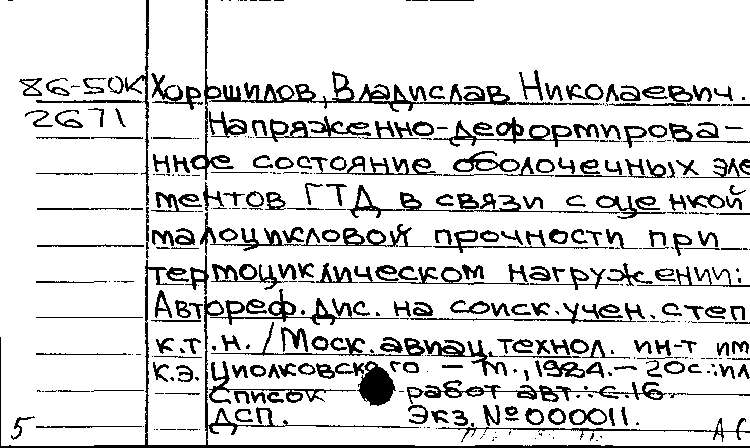 86-50К Хорошилов, Владислав Николаевич.
2671 Напряженно-деформирова-
нное состояние оболочечных эле
ментов ГТД в связи с оценкой
малоцикловой прочности при
термоциклическом нагружении:
Автореф. дис. на соиск. учен. степ
к.т.н. / Моск. авиац. технол. ин-т им
К.Э. Циолковского. – М., 1984. – 20с.: ил
Список работ авт.: с.16.
ДСП. Экз. № 000011.
5